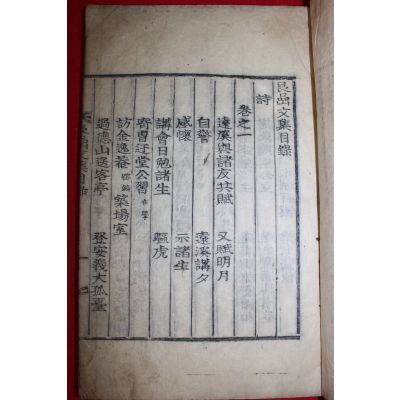 艮嵒文集目錄
詩
卷之一
遠溪與諸友共賦 又賦明月
自警 遠溪講夕
感懷 示諸生
講會日勉諸生 嘔虎
寄曺迂堂公習
訪金逸菴 築場室
過德山送客亭 登安義大孤臺
文集目錄 一